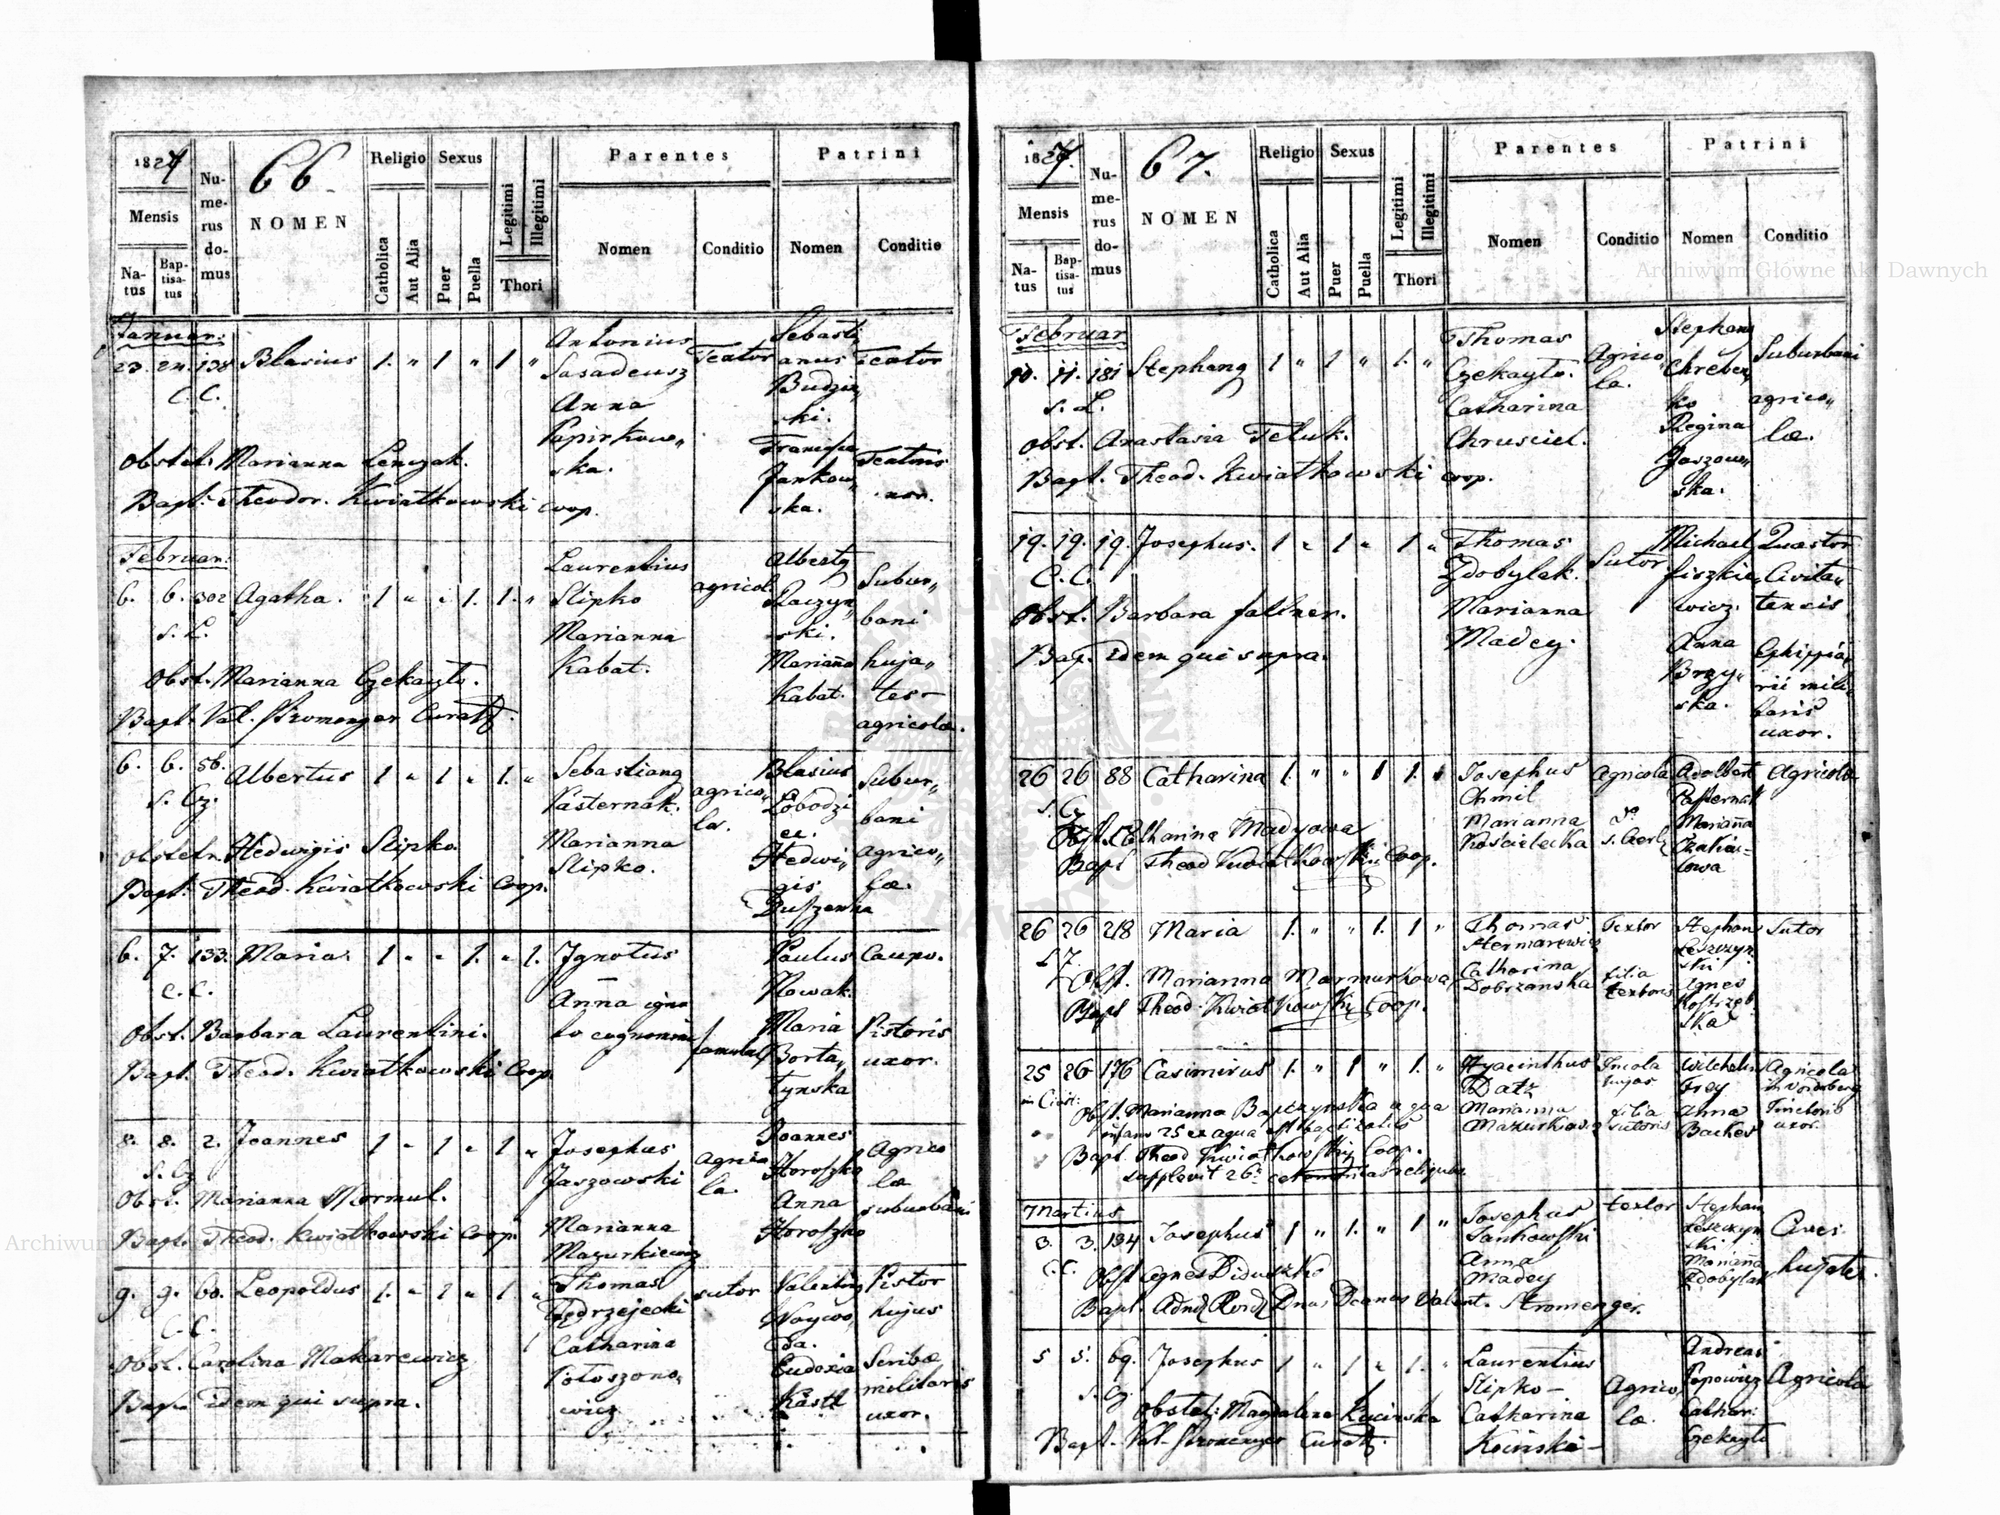 1827
66.
Nu-
me-
rus
do-
mus
NOMEN
Religio
Sexus
Parentes
Patrini
Mensis
Na-
tus
Bap-
tisa-
tus
Catholica
Aut Alia
Puer
Puella
Legitimi
Illegitimi
Thori
Nomen
Conditio
Nomen
Conditio
Januar:
23. 24. 138 Blasius 1. " 1 " 1. "
C. C.
Antonius
Sasadeusz
Anna
Papirkow„
ska.
Textor
Sebasti
anus
Budziń„
ski.
Textor
Francisca
Jankow„
ska.
Textoris
uxor.
Obstet. Marianna Lenczak.
Bapt. Theodor. Kwiatkowski coop.
Februar:
6. 6. 302 Agatha. 1 " " 1. 1. "
s. L.
Laurentius
Slipko
Marianna
Kabat.
agricol.
Alberty
Raczyn„
ski.
Marianna
Kabat.
Subur„
bani
huja„
tes
agricolæ.
Obst. Marianna Czekayło.
Bapt. Val. Stromenger Curat.
6. 6. 56. Albertus 1 " 1 " 1. "
s. Cz.
Sebastiang
Pasternak.
Marianna
Slipko.
agrico„
la.
Blasius
Łobodzi
ec.
Hedwi„
gis
Duszenna
Subur„
bani
agrico„
læ.
Obstetr. Hedwigis Slipko.
Bapt. Theod. Kwiatkowski Coop.
6. 7. 133. Maria. 1 " " 1. " 1.
C. C.
Ignotus
Anna igno
to cognomin
famula
Paulus
Nowak.
Maria
Borta„
tynska
Caupo.
Pistoris
uxor.
Obst. Barbara Laurentini.
Bapt. Theod. Kwiatkowski Coop.
8. 8. 2. Joannes 1 " 1 " 1 "
s. Cz
Josephus
Jaszowski
Marianna
Mazurkiewicz
Agrico
la.
Joannes
Horoszko
Anna
Horoszko
Agrico
læ
suburbani
Obst. Marianna Mormul.
Bapt. Theod. Kwiatkowski Coop.
9. 9. 60. Leopoldus 1. " 1 " 1 "
C. C.
Thomas
Jędrzejecki
Catharina
Potoszono„
wicz
sutor
Valentin
Woywo„
da.
Eudoxia
Kästl
Pistor
hujus
Scribæ
militaris
uxor.
Obst. Carolina Makarewicz
Bapt. idem qui supra.
1827.
67.
Nu-
me-
rus
do-
mus
NOMEN
Religio
Sexus
Parentes
Patrini
Mensis
Na-
tus
Bap-
tisa-
tus
Catholica
Aut Alia
Puer
Puella
Legitimi
Illegitimi
Thori
Nomen
Conditio
Nomen
Conditio
Februar
10. 11. 181 Stephang 1 " 1 " 1. "
s. L.
Thomas
Czekayło.
Catharina
Chrusciel.
Agrico
la.
Stephang
Chreben„
ko
Regina
Jaszow„
ska.
Suburbani
agrico„
læ.
Obst. Anastasia Feluk.
Bapt. Theod. Kwiatkowski coop.
19. 19. 19. Josephus. 1 " 1 " 1 "
C. C.
Thomas
Zdobylak.
Marianna
Madey.
Sutor
Michael
fiszkie„
wicz.
Anna
Brzy„
ska.
Quæstor
Civita„
tensis
Ephippia„
rii mili„
taris
uxor.
Obst. Barbara fallner.
Bap. idem qui supra.
26 26 88 Catharina 1. " " 1 1. "
s. Cz
Josephus
Chmil
Marianna
Kościelecka
Agricola
Adalbert
Pasternak
Marianna
Agricola
Obst. Catharina Madyowa
Bapt Theod Kwiatkowski Coop.
26 26 218 Maria 1. " " 1. 1 "
Thomas
Catharina
Dobrzanska
Textor
filia
textoris
Stephan
Leszczyn
ski
Agnes
Kostrzeb
ska
Sutor
Obst. Marianna Marmurkowa
Bapt Theod. Kwiatkowski Coop.
25 26 176 Casimirus 1. " 1 " 1. "
in Civit:
Hyacinthus
Datz
Marianna
Mazurkiewicz
Incola
hujas
filia
sutoris
Wilchelm
Frey
Anna
Bacher
Agricola
Tinctoris
uxor.
Obst. Marianna Bapczynska a qua
infans 25 ex aqua est baptizatus
Bapt. Theod Kwiatkowski Coop.
supplevit 26. ceremonias reliquas
Martius
3. 3. 134 Josephus 1 " 1. " 1 "
C. C.
Josephus
Jankowski
Anna
Madey
textor
Stephan
Leszczyn
ski
Marianna
Zdobylak
Cives
hujates.
Obst Agnes Diduszko
Bapt. Admd Rvrd Dnus Decanus Valent. Stromenger.
5 5. 69. Josephus 1 " 1 " 1. "
s. Cz
Laurentius
Slipko –
Catharina
Kocinska –
Agrico
la.
Andreas
Popowicz
Cathar:
Czekayło
Agricola
Obstet: Magdalena Kucinska
Bapt. Val. Stromenger Curat:
Archiwum Główne Akt Dawnych